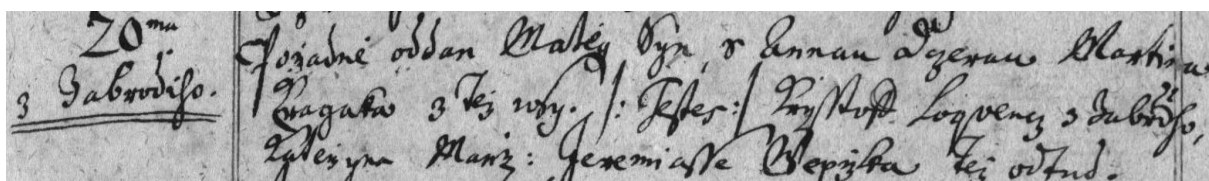 20ma
z Zabrodiho.
Pořádně oddan Matěg Syn, s Annau dczerau Martina
Kragaka z Tej wsy. /: Testes :/ Krysstoff Loqvencz z Zabrdiho,
Manz: Jeremiasse Wepržka Tej odtud.